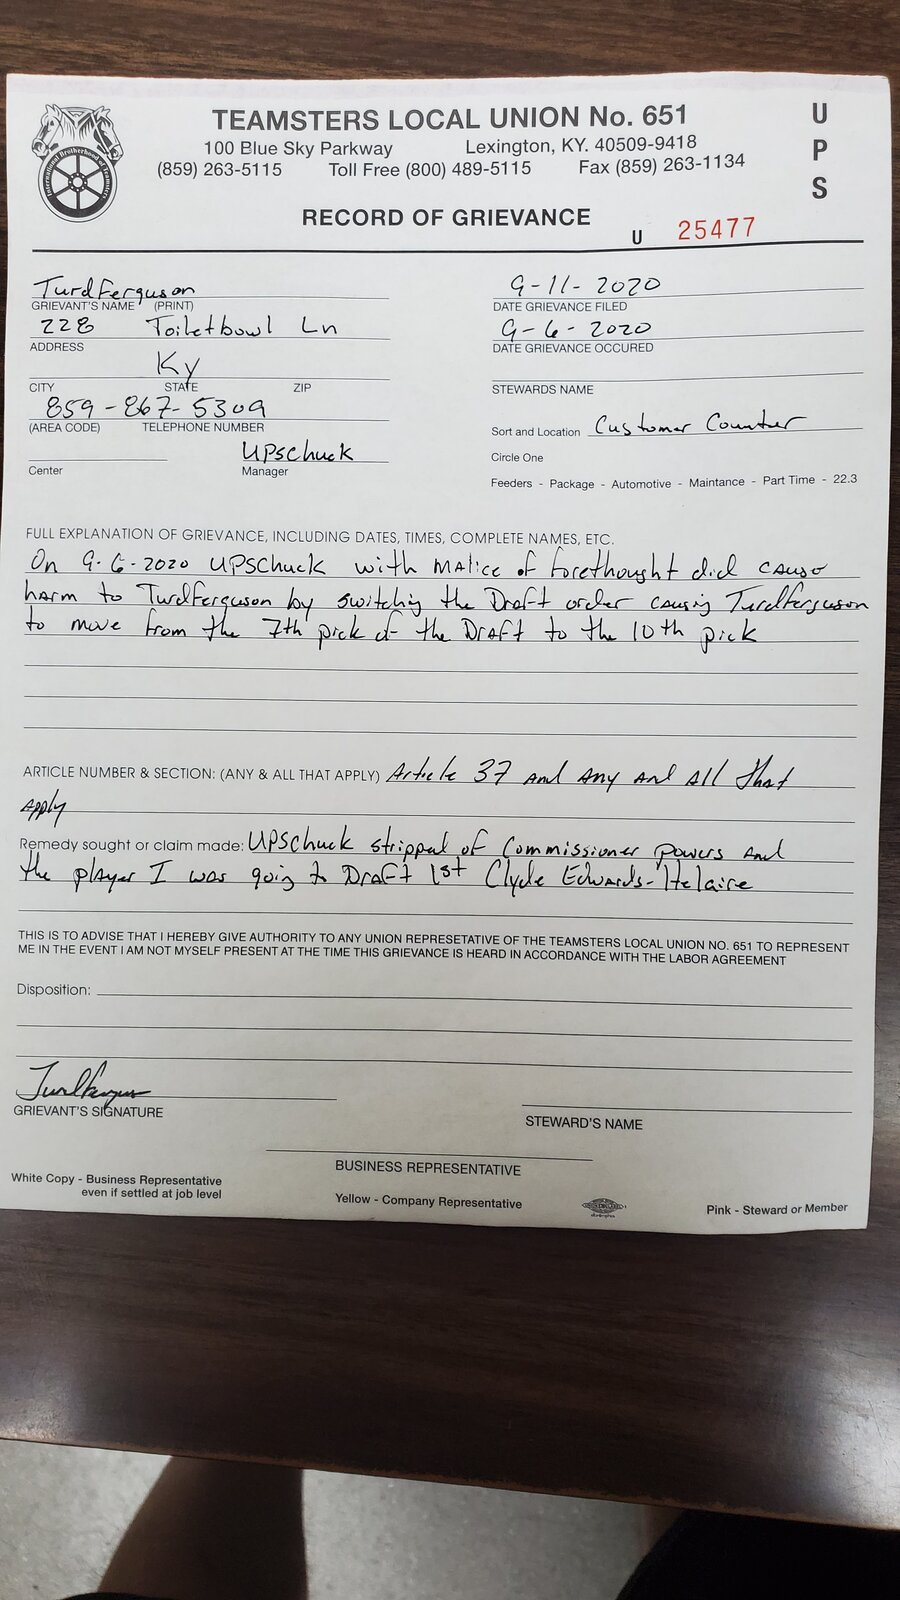 TEAMSTERS LOCAL UNION No. 651
100 Blue Sky Parkway Lexington, KY. 40509-9418
(859) 263-5115 Toll Free (800) 489-5115 Fax (859) 263-1134
U
P
S
International Brotherhood of Teamsters
RECORD OF GRIEVANCE
U 25477
TurdFerguson
GRIEVANT'S NAME (PRINT)
228 Toiletbowl Ln
ADDRESS
Ky
CITY STATE ZIP
859-867-5309
(AREA CODE) TELEPHONE NUMBER
UPSchuck
Center Manager
9-11-2020
DATE GRIEVANCE FILED
9-6-2020
DATE GRIEVANCE OCCURED
STEWARDS NAME
Sort and Location Customer Counter
Circle One
Feeders - Package - Automotive - Maintance - Part Time - 22.3
FULL EXPLANATION OF GRIEVANCE, INCLUDING DATES, TIMES, COMPLETE NAMES, ETC.
On 9-6-2020 UPSchuck with Malice of forethought did cause
harm to TurdFerguson by switching the Draft order causing Turdferguson
to move from the 7th pick of the Draft to the 10th pick
ARTICLE NUMBER & SECTION: (ANY & ALL THAT APPLY) Article 37 and Any and All that
Apply
Remedy sought or claim made: UPSchuck stripped of Commissioner powers and
the player I was going to Draft 1st Clyde Edwards-Helaire
THIS IS TO ADVISE THAT I HEREBY GIVE AUTHORITY TO ANY UNION REPRESETATIVE OF THE TEAMSTERS LOCAL UNION NO. 651 TO REPRESENT
ME IN THE EVENT I AM NOT MYSELF PRESENT AT THE TIME THIS GRIEVANCE IS HEARD IN ACCORDANCE WITH THE LABOR AGREEMENT
Disposition:
GRIEVANT'S SIGNATURE
STEWARD'S NAME
BUSINESS REPRESENTATIVE
White Copy - Business Representative
even if settled at job level
Yellow - Company Representative
Pink - Steward or Member